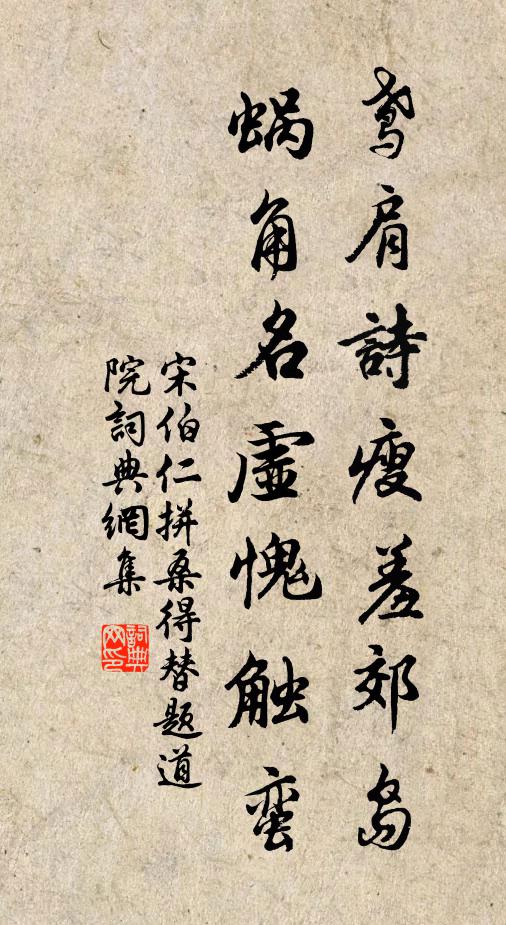 鸢肩詩瘦羞郊島
蜗角名虛愧触蛮
宋伯仁拼桑得替题道
院詞典網集
詞典网印